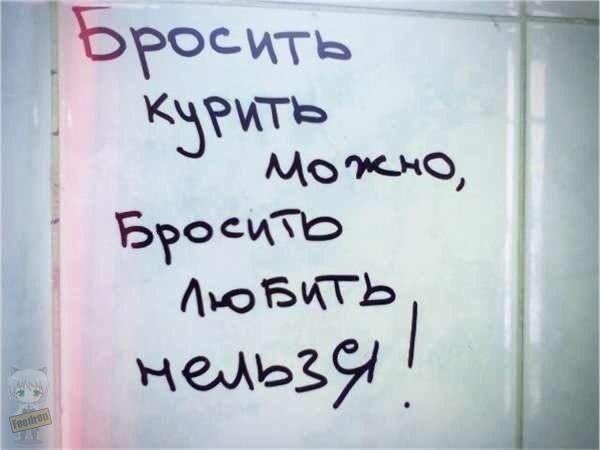 Бросить
курить
можно,
Бросить
любить
нельзя!
Feedron